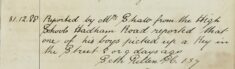 31.12.88 Reported by Mrs from the High
School Hadham Road reported that
one of his boys picked up a Key in
the Street 2 or 3 days ago
Seth P.C. 137